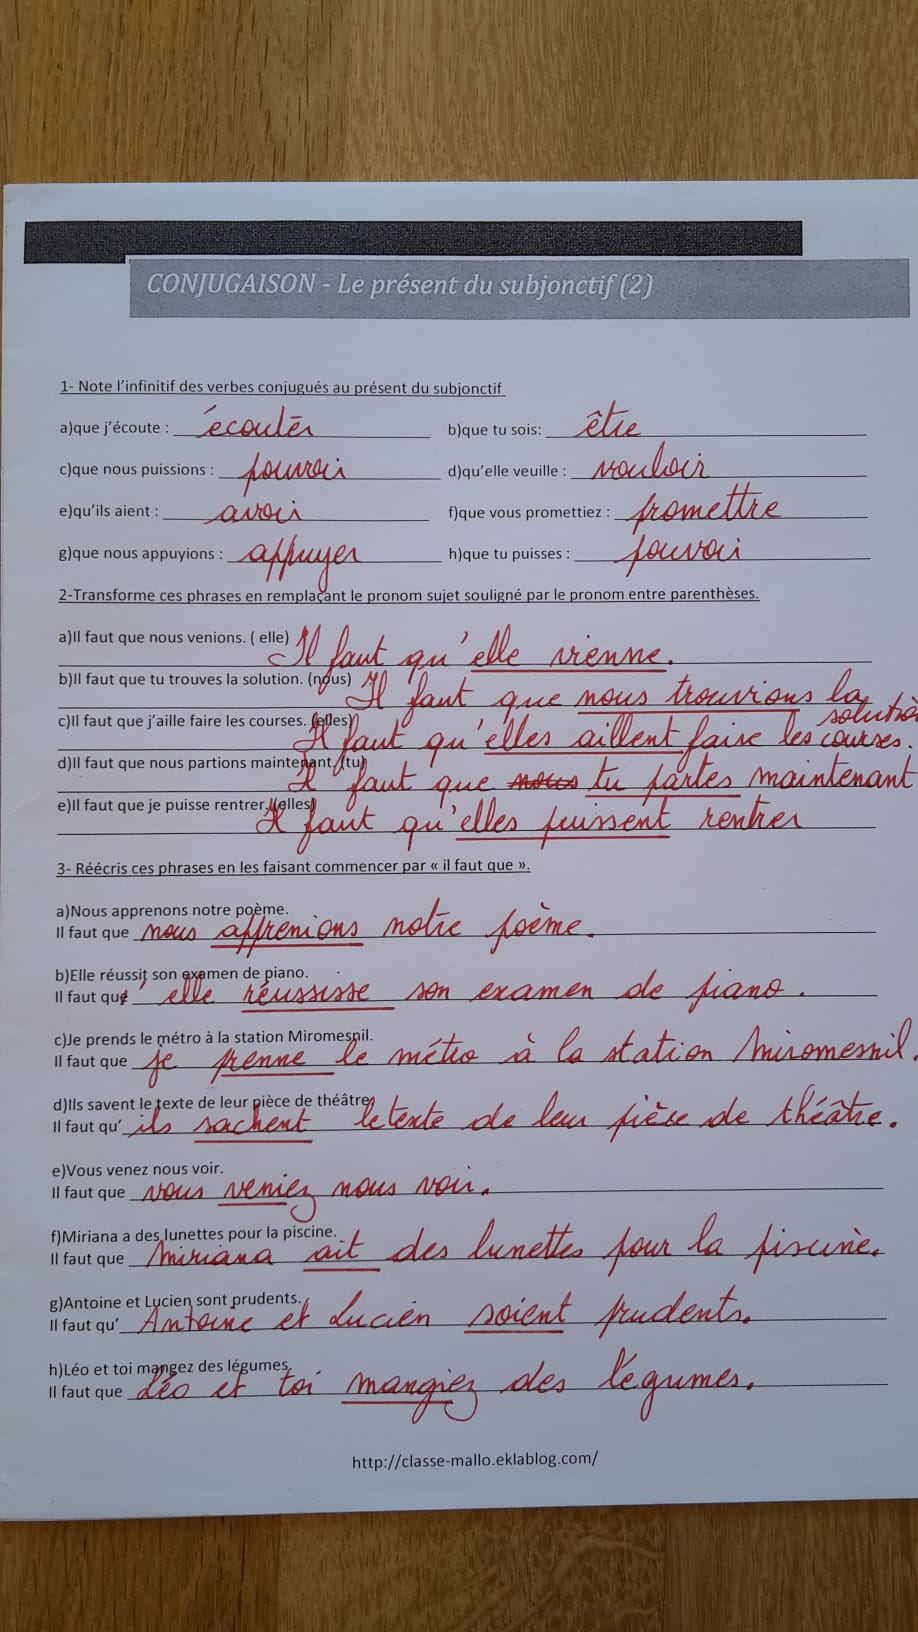 CONJUGAISON - Le présent du subjonctif (2)
1- Note l'infinitif des verbes conjugués au présent du subjonctif
a)que j'écoute : écouter b)que tu sois: être
c)que nous puissions : pouvoir d)qu'elle veuille : vouloir
e)qu'ils aient : avoir f)que vous promettiez : promettre
g)que nous appuyions : appuyer h)que tu puisses : pouvoir
2-Transforme ces phrases en remplaçant le pronom sujet souligné par le pronom entre parenthèses.
a)Il faut que nous venions. ( elle) Il faut qu'elle vienne.
b)Il faut que tu trouves la solution. (nous) Il faut que nous trouvions la solution
c)Il faut que j'aille faire les courses. (elles) Il faut qu'elles aillent faire les courses.
d)Il faut que nous partions maintenant. (tu) Il faut que nous tu partes maintenant
e)Il faut que je puisse rentrer. (elles) Il faut qu'elles puissent rentrer
3- Réécris ces phrases en les faisant commencer par « il faut que ».
a)Nous apprenons notre poème.
Il faut que nous apprenions notre poème.
b)Elle réussit son examen de piano.
Il faut qu' elle réussisse son examen de piano.
c)Je prends le métro à la station Miromesnil.
Il faut que je prenne le métro à la station Miromesnil.
d)Ils savent le texte de leur pièce de théâtre.
Il faut qu' ils sachent le texte de leur pièce de théâtre.
e)Vous venez nous voir.
Il faut que vous veniez nous voir.
f)Miriana a des lunettes pour la piscine.
Il faut que Miriana ait des lunettes pour la piscine.
g)Antoine et Lucien sont prudents.
Il faut qu' Antoine et Lucien soient prudents.
h)Léo et toi mangez des légumes.
Il faut que Léo et toi mangiez des légumes.
http://classe-mallo.eklablog.com/